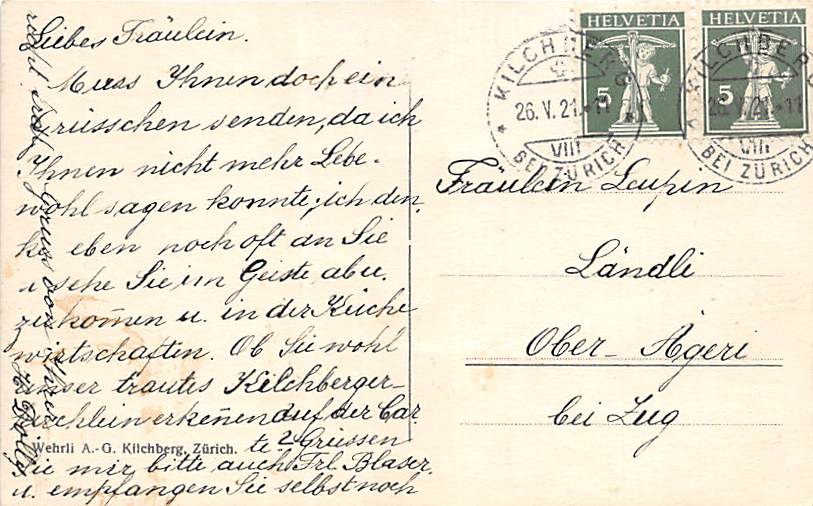 Liebes Fräulein.
Muss Ihnen doch ein
Grüsschen senden, da ich
Ihnen nicht mehr Lebe-
wohl sagen konnte; ich den-
ke eben noch oft an Sie
u sehe Sie im Geiste ab u.
zu kom̄en u. in der Küche
wirtschaften. Ob Sie wohl
unser trautes Kilchberger-
kirchlein erken̄en auf der Car
te? Grüssen
Sie mir bitte auch Frl. Blaser.
u. empfangen Sie selbst noch
recht Gruss von Ihrer
Wehrli A.-G. Kilchberg, Zürich.
HELVETIA
5
HELVETIA
5
KILCHBERG
26. V. 21. 11
VIII
BEI ZÜRICH
KILCHBERG
26. V. 21. 11
VIII
BEI ZÜRICH
Fräulein Leupin
Ländli
Ober-Ägeri
bei Zug